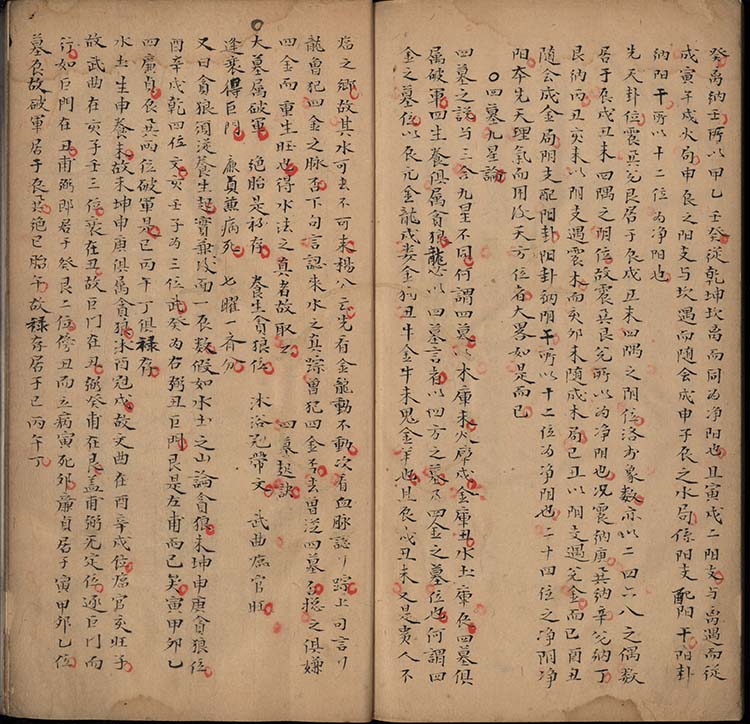 癸离納壬所以甲乙壬癸從乾坤坎离而同为净阳也且寅戌二阳支与离遇而從
成寅午戌火局申辰之阳支与坎遇而随会成申子辰之水局係阳支配阳干阳卦
納阳干所以十二位为净阳也
先天卦位震巽兑艮居于辰戌丑未四隅之阴位洛方象数亦以二四六八之偶数
居于辰戌丑未四隅之阴位故震巽艮兑所以为净阴也况震納庚巽納辛兑納丁
艮納丙丑亥未以阴支遇震木而亥卯未随成木局巳丑以阴支遇兑金而巳酉丑
随会成金局阴支配阴卦阴卦納阴干所以十二位为净阴也二十四位之净阴净
阳夲先天理氣而用后天方位者大畧如是而已
○四墓九星論
四墓之説与三合九星不同何謂四墓以木庫未火庫戌金庫丑水土庫辰四墓俱
属破軍四生養俱属貪狼龍 以四墓言者以四方之墓及四金之墓位也何謂四
金之墓位以辰亢金龍戌娄金狗丑牛金牛未鬼金羊也且辰戌丑未又是貴人不
临之鄉故其水可去不可来楊公云先看金龍動不動次看血脉認 踪上句言
龍曾犯四金之脉否下句言認来水之真踪曾犯四金否去曾從四墓否揔之俱嫌
四金而重生旺也得水法之真者故取之 四墓起訣
大墓属破軍 絶胎是禄存 養生貪狼位 沐浴冠帶文 武曲临官旺
逢衰得巨門 廉貞兼病死 七曜一斉分
又曰貪狼須從養生起實兼 面一辰数假如水土之山論貪狼未坤申庚貪狼位
酉辛戌乾四位文亥壬子为三位武癸为右弼丑巨門艮是左甫而已矣寅甲卯乙
四廉貞辰巽两位破軍是巳丙午丁俱禄存
水土生申養未故未坤申庚俱属貪狼沐酉冠戌故文曲在酉辛戌位临官亥旺子
故武曲在亥子壬三位衰在丑故巨門在丑弼癸甫在艮盖甫弼无定位逐巨門而
行如巨門在丑甫弼即居于癸艮二位傍丑而立病寅死卯廉貞居于寅甲卯乙位
墓辰故破軍居于辰巽絶巳胎午故禄存居于巳丙午丁